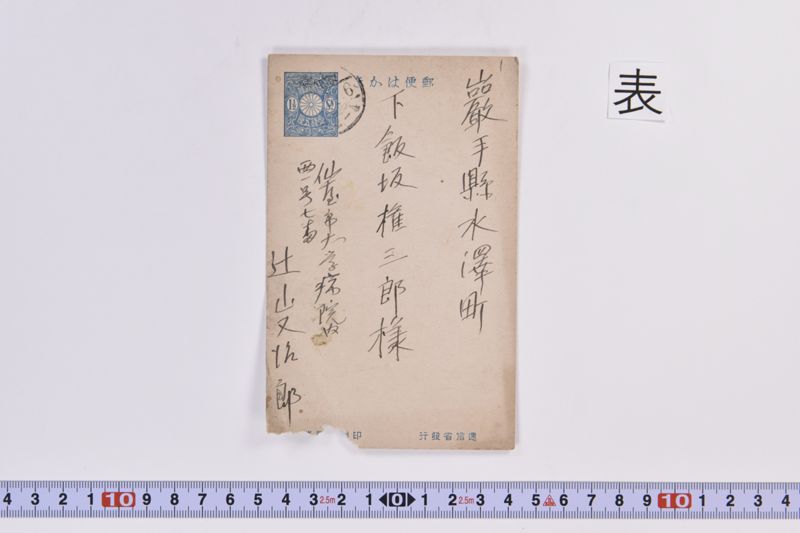 表
郵便はか
巖手縣水澤町
下飯坂権三郎様
仙臺市大学病院内
西一号七番
辻山又治郎
逓信省発行
印
4 3 2 1 10 9 8 7 6 5 4 3 2.5m 2 1 0 1 2 2.5m 3 4 5 6 7 8 9 10 1 2 3 4